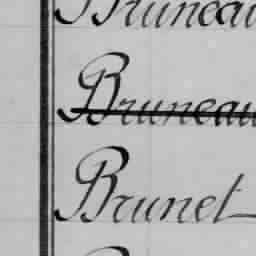 Bruneau
Bruneau
Brunet